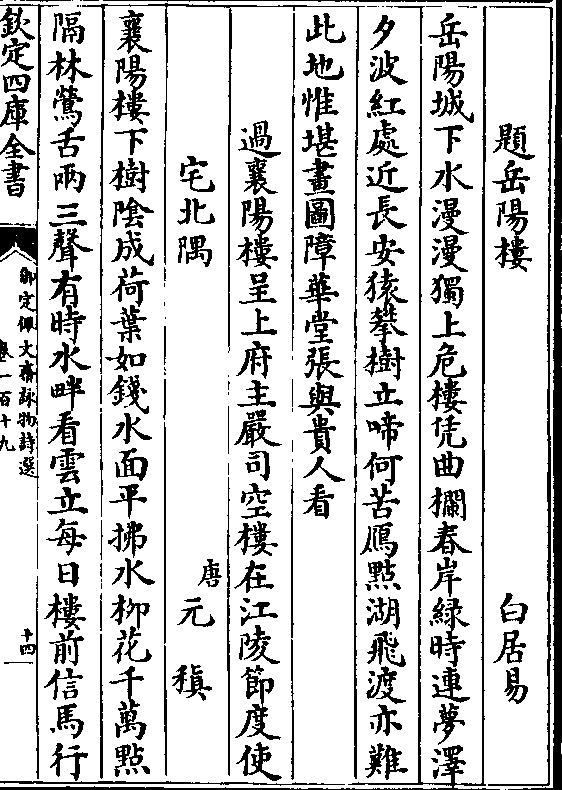 題岳陽樓 白居易
岳陽城下水漫漫獨上危樓凭曲欄春岸綠時連夢澤
夕波紅處近長安猿攀樹立啼何苦鴈點湖飛渡亦難
此地惟堪畫圖障華堂張與貴人看
過襄陽樓呈上府主嚴司空樓在江陵節度使
宅北隅 唐元稹
襄陽樓下樹陰成荷葉如錢水面平拂水柳花千萬點
隔林鶯舌兩三聲有時水畔看雲立每日樓前信馬行
欽定四庫全書
御定佩文齋詠物詩選
卷一百十九
十四